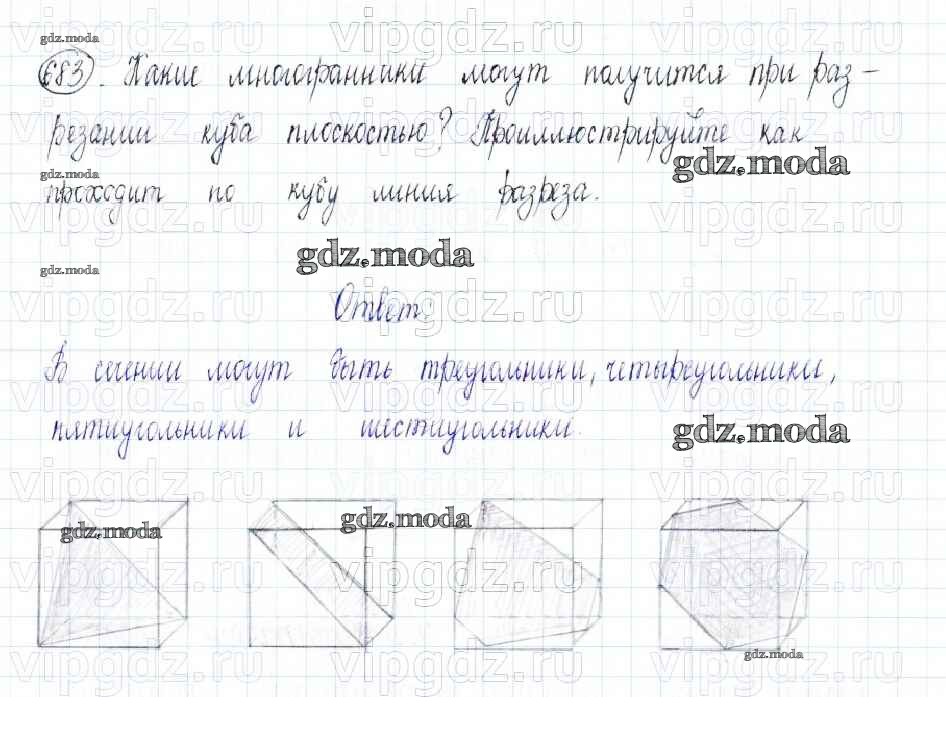 gdz.moda
683. Какие многогранники могут получится при раз-
резании куба плоскостью? Проиллюстрируйте как
gdz.moda
gdz.moda
проходит по кубу линия разреза.
gdz.moda
gdz.moda
Ответ:
В сечении могут быть треугольники, четырехугольники,
пятиугольники и шестиугольники.
gdz.moda
gdz.moda
gdz.moda
gdz.moda
vipgdz.ru